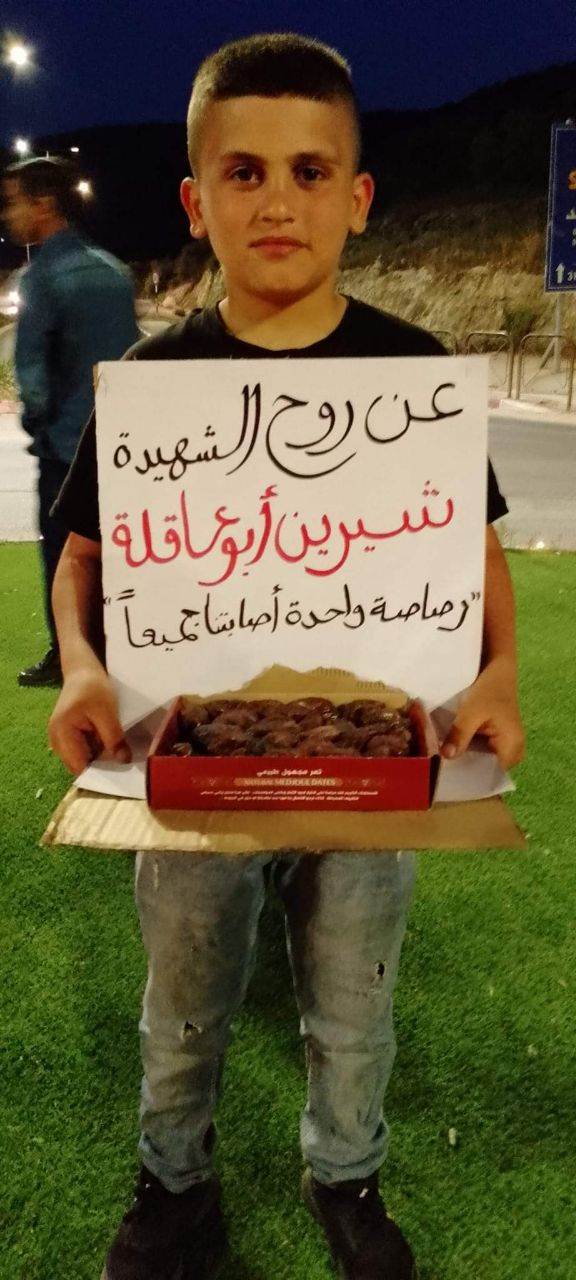 عن روح الشهيدة
شيرين أبو عاقلة
"رصاصة واحدة أصابتنا جميعاً"
تمر مجهول طبيعي
NATURAL MEDJOUL DATES